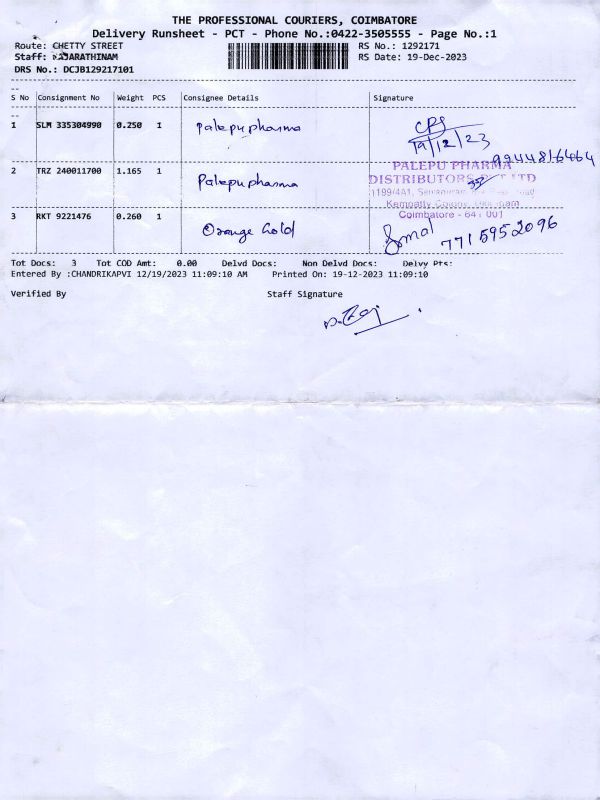 THE PROFESSIONAL COURIERS, COIMBATORE
Delivery Runsheet - PCT - Phone No.:0422-3505555 - Page No.:1
Route: CHETTY STREET
RS No.: 1292171
Staff: RAJARATHINAM
RS Date: 19-Dec-2023
DRS No.: DCJB129217101
S No Consignment No Weight PCS Consignee Details Signature
1 SLM 335304990 0.250 1 Palepu pharma
19/12/23
9944816464
2 TRZ 240011700 1.165 1 Palepu pharma
PALEPU PHARMA
DISTRIBUTORS PVT LTD
1199/4A1,
Kempatty Colony,
Coimbatore - 641 001
3 RKT 9221476 0.260 1 Orange Gold
7715952096
Tot Docs: 3 Tot COD Amt: 0.00 Delvd Docs: Non Delvd Docs: Delvy Pts:
Entered By :CHANDRIKAPVI 12/19/2023 11:09:10 AM Printed On: 19-12-2023 11:09:10
Verified By Staff Signature